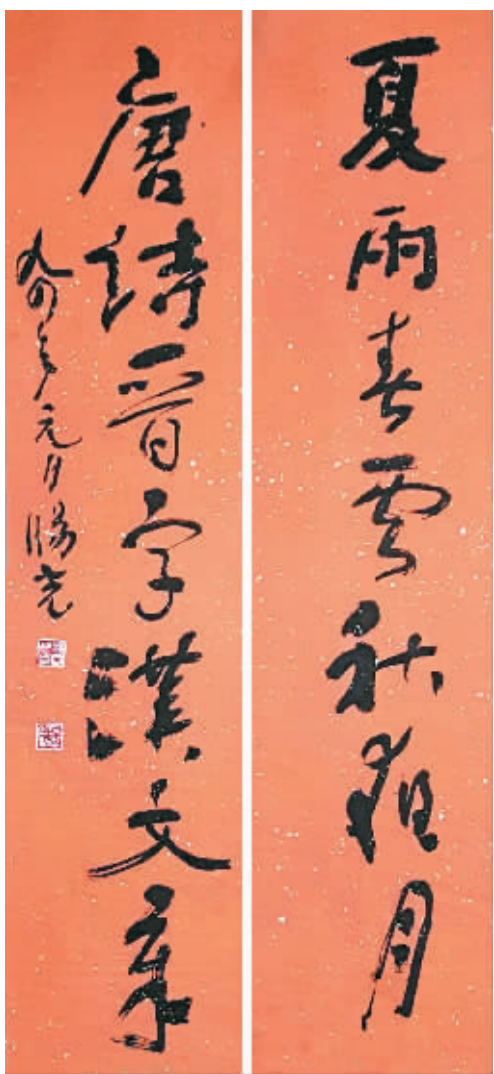 夏雨春雲秋夜月
唐詩晉字漢文章
年元月